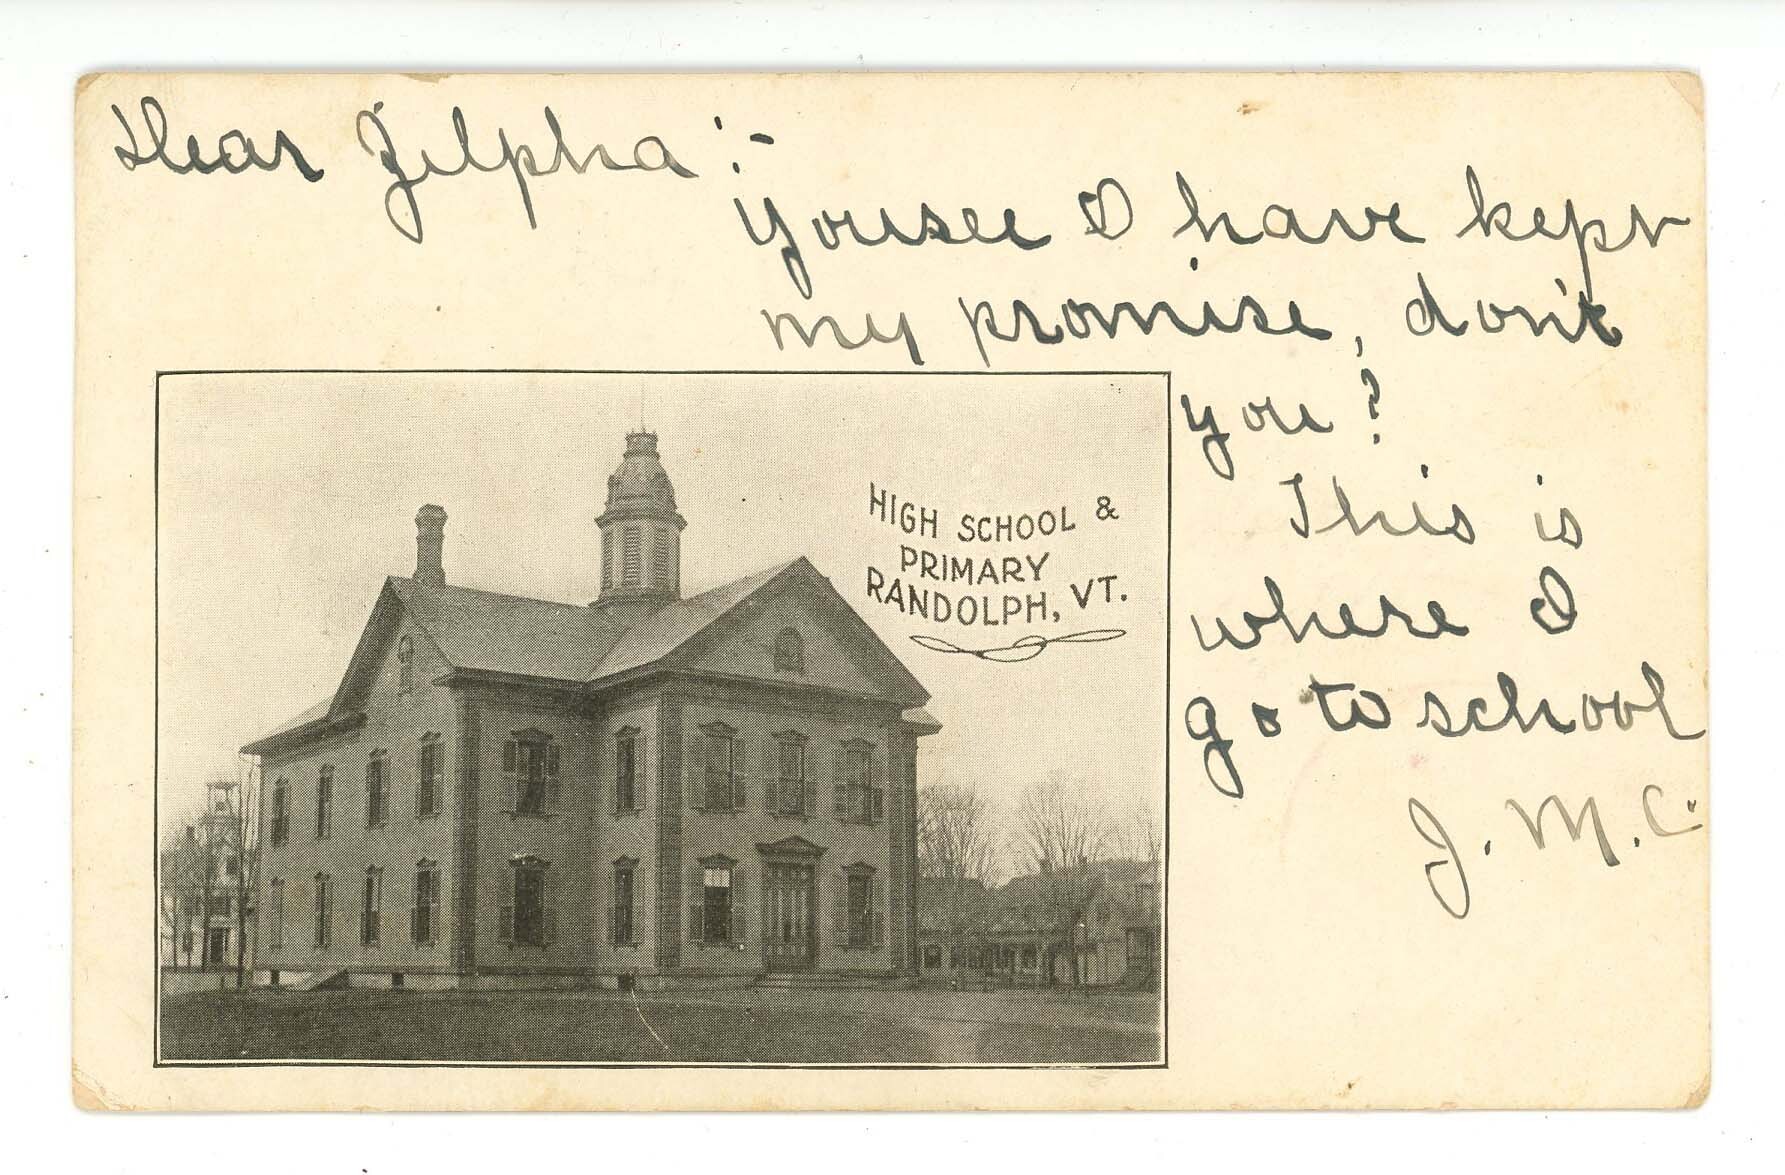 Dear Zilpha :-
You see I have kept
my promise, don't
you?
This is
where I
go to school
J. M. C.
HIGH SCHOOL &
PRIMARY
RANDOLPH, VT.